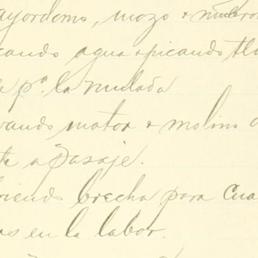 ayordomo, mozo &
cando agua & picando tla
pª. la mulada
vando motor & molino a
a pasaje.
riendo brecha para Cua
as en la labor.